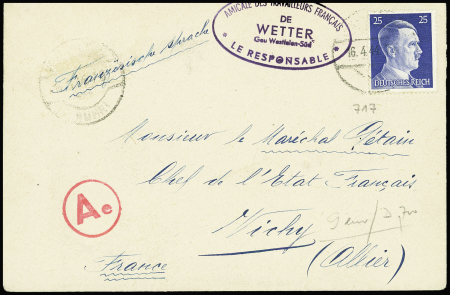 AMICALE DES TRAVAILLEURS FRANÇAIS
DE
WETTER
Gau Westfalen-Süd
* LE RESPONSABLE *
25 25
DEUTSCHES REICH
6.4.4
Französische sprache
717
Monsieur le Maréchal Pétain
Chef de l'Etat Français
Vichy
(Allier)
France
Ae